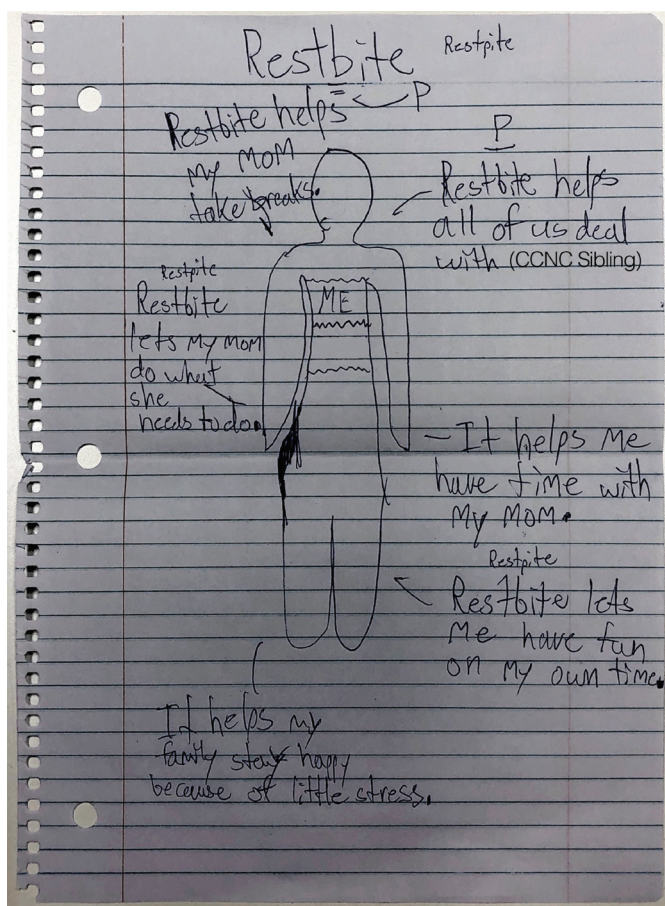 Restbite Restpite
P
Restbite helps
my mom
take breaks.
P
Restbite helps
all of us deal
with (CCNC Sibling)
Restpite
Restbite
lets my mom
do what
she
needs to do.
ME
It helps me
have time with
my mom.
Restpite
Restbite lets
me have fun
on my own time.
It helps my
family stay happy
because of little stress.